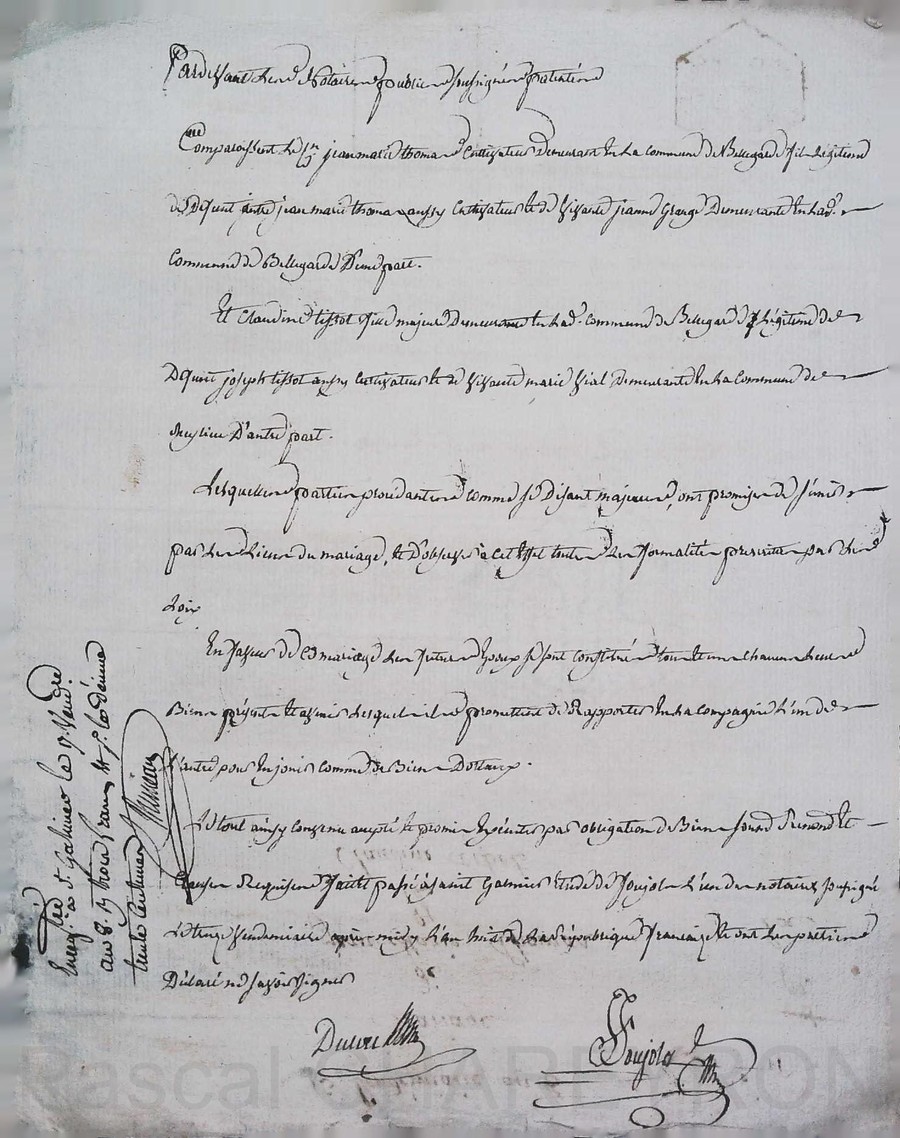 Pardevant Les Notaires publics soussignés
Comparoissent Le Sr jean marie thoma Cultivateur Demeurant En La Commune de Bellegarde fils Légitime
de Défunt autre jean marie thoma aussy Cultivateur Et de vivante jeanne Grange Demeurante En Lad.
Commune de Bellegarde D'une part.
Et Claudine tissot fille majeure Demeurante En Lad. Commune de Bellegarde Légitime de
Défunt joseph tissot aussy Cultivateur Et de vivante marie vial Demeurante En La Commune de
D'autre part.
Lesquelles parties procédantes comme se Disant majeures, ont promis de s'unir
par Les Liens du mariage, Et D'observer à cet Effet toutes Les formalités prescrites par Les
Loix
En faveur de Ce mariage Les futurs Epoux se sont constitués tous Et un chacun Leurs
Biens présents Et avenir Lesquels ils promettent de Rapporter En La Compagnie L'un de
L'autre pour En jouir comme de Biens Dotaux.
Le tout ainsy Convenu accepté Et promis Exécuter par obligation de Biens
Clauses Requises fait Et passé à saint Galmier Etude de Foujols L'un des notaires soussignés
Le vendemiaire après midy L'an huit de La République française Et ont Les parties
Déclaré ne savoir signer
Foujols
Enregistré à St Galmier le 9. Vend.re
an 8. R/ trois francs
trente centimes
Pascal CHARPERON